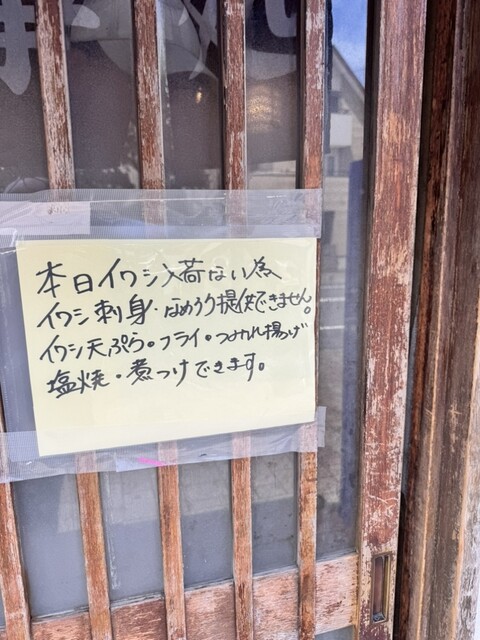 本日イワシ入荷ない為、
イワシ刺身・なめろう提供できません。
イワシ天ぷら。フライ。つみれ揚げ
塩焼・煮つけできます。